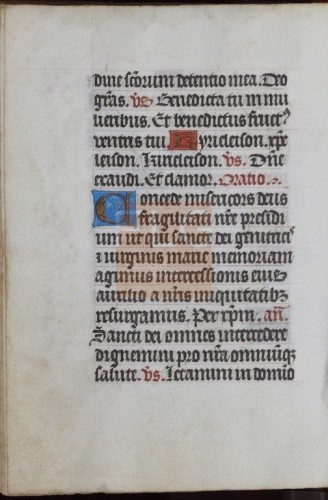 dine sc̄orum detentio mea. Deo
gr̄as. vs̄ Benedicta tu in mu
lieribus. Et benedictus fruct⁹
ventris tui. Kyrieleison. xp̄e
leison. Kirieleison. vs̄. Dn̄e
exaudi. Et clamor. Oratio.
Concede misericors deus
fragilitati nr̄e presidi
um ut qui sancte dei genitrici⁹
⁊ virginis marie memoriam
agimus intercessionis eius
auxilio a nr̄is iniquitatibꝫ
resurgamus. Per xp̄m. an̄.
Sancti dei omnes intercedere
dignemini pro nr̄a omniūqꝫ
salute. vs̄. Letamini in domīo